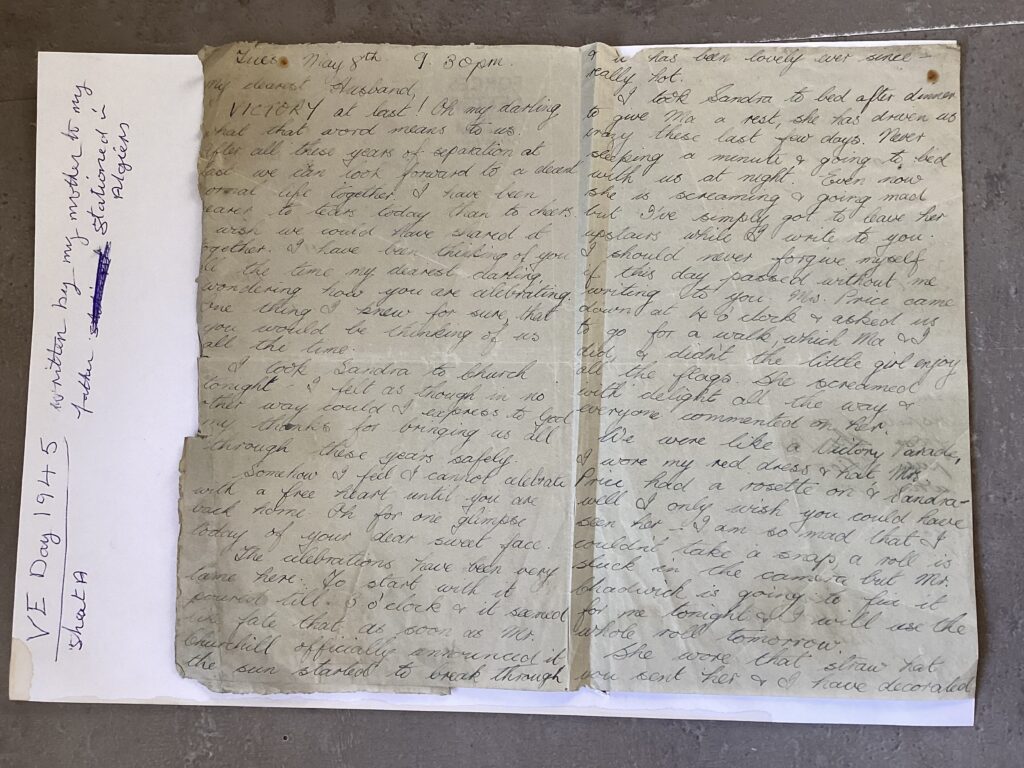 VE Day 1945 written by my mother to my
father stationed in
Algiers
Sheet A
Tues May 8th 9.30pm.
My dearest Husband,
VICTORY at last! Oh my darling
what that word means to us.
After all these years of separation at
last we can look forward to a decent
normal life together. I have been
nearer to tears today than to cheers.
I wish we could have shared it
together. I have been thinking of you
all the time my dearest darling,
wondering how you are celebrating.
One thing I knew for sure, that
you would be thinking of us
all the time.
I took Sandra to church
tonight - I felt as though in no
other way could I express to God
my thanks for bringing us all
through these years safely.
Somehow I feel I cannot celebrate
with a free heart until you are
back home. Oh for one glimpse
today of your dear sweet face.
The celebrations have been very
tame here. To start with it
poured till 3 o'clock & it seemed
like fate that as soon as Mr.
Churchill officially announced it
the sun started to break through
& it has been lovely ever since -
really hot.
I took Sandra to bed after dinner
to give Ma a rest, she has driven us
crazy these last few days. Never
sleeping a minute & going to bed
with us at night. Even now
she is screaming & going mad
but I've simply got to leave her
upstairs while I write to you.
I should never forgive myself
if this day passed without me
writing to you. Mrs. Price came
down at 4 o'clock & asked us
to go for a walk, which Ma & I
did, & didn't the little girl enjoy
all the flags. She screamed
with delight all the way &
everyone commented on her.
We were like a Victory Parade,
I wore my red dress & hat, Mrs.
Price had a rosette on & Sandra -
well I only wish you could have
seen her. I am so mad that I
couldn't take a snap, a roll is
stuck in the camera but Mr.
is going to fix it
for me tonight & I will use the
whole roll tomorrow.
She wore that straw hat
you sent her & I have decorated